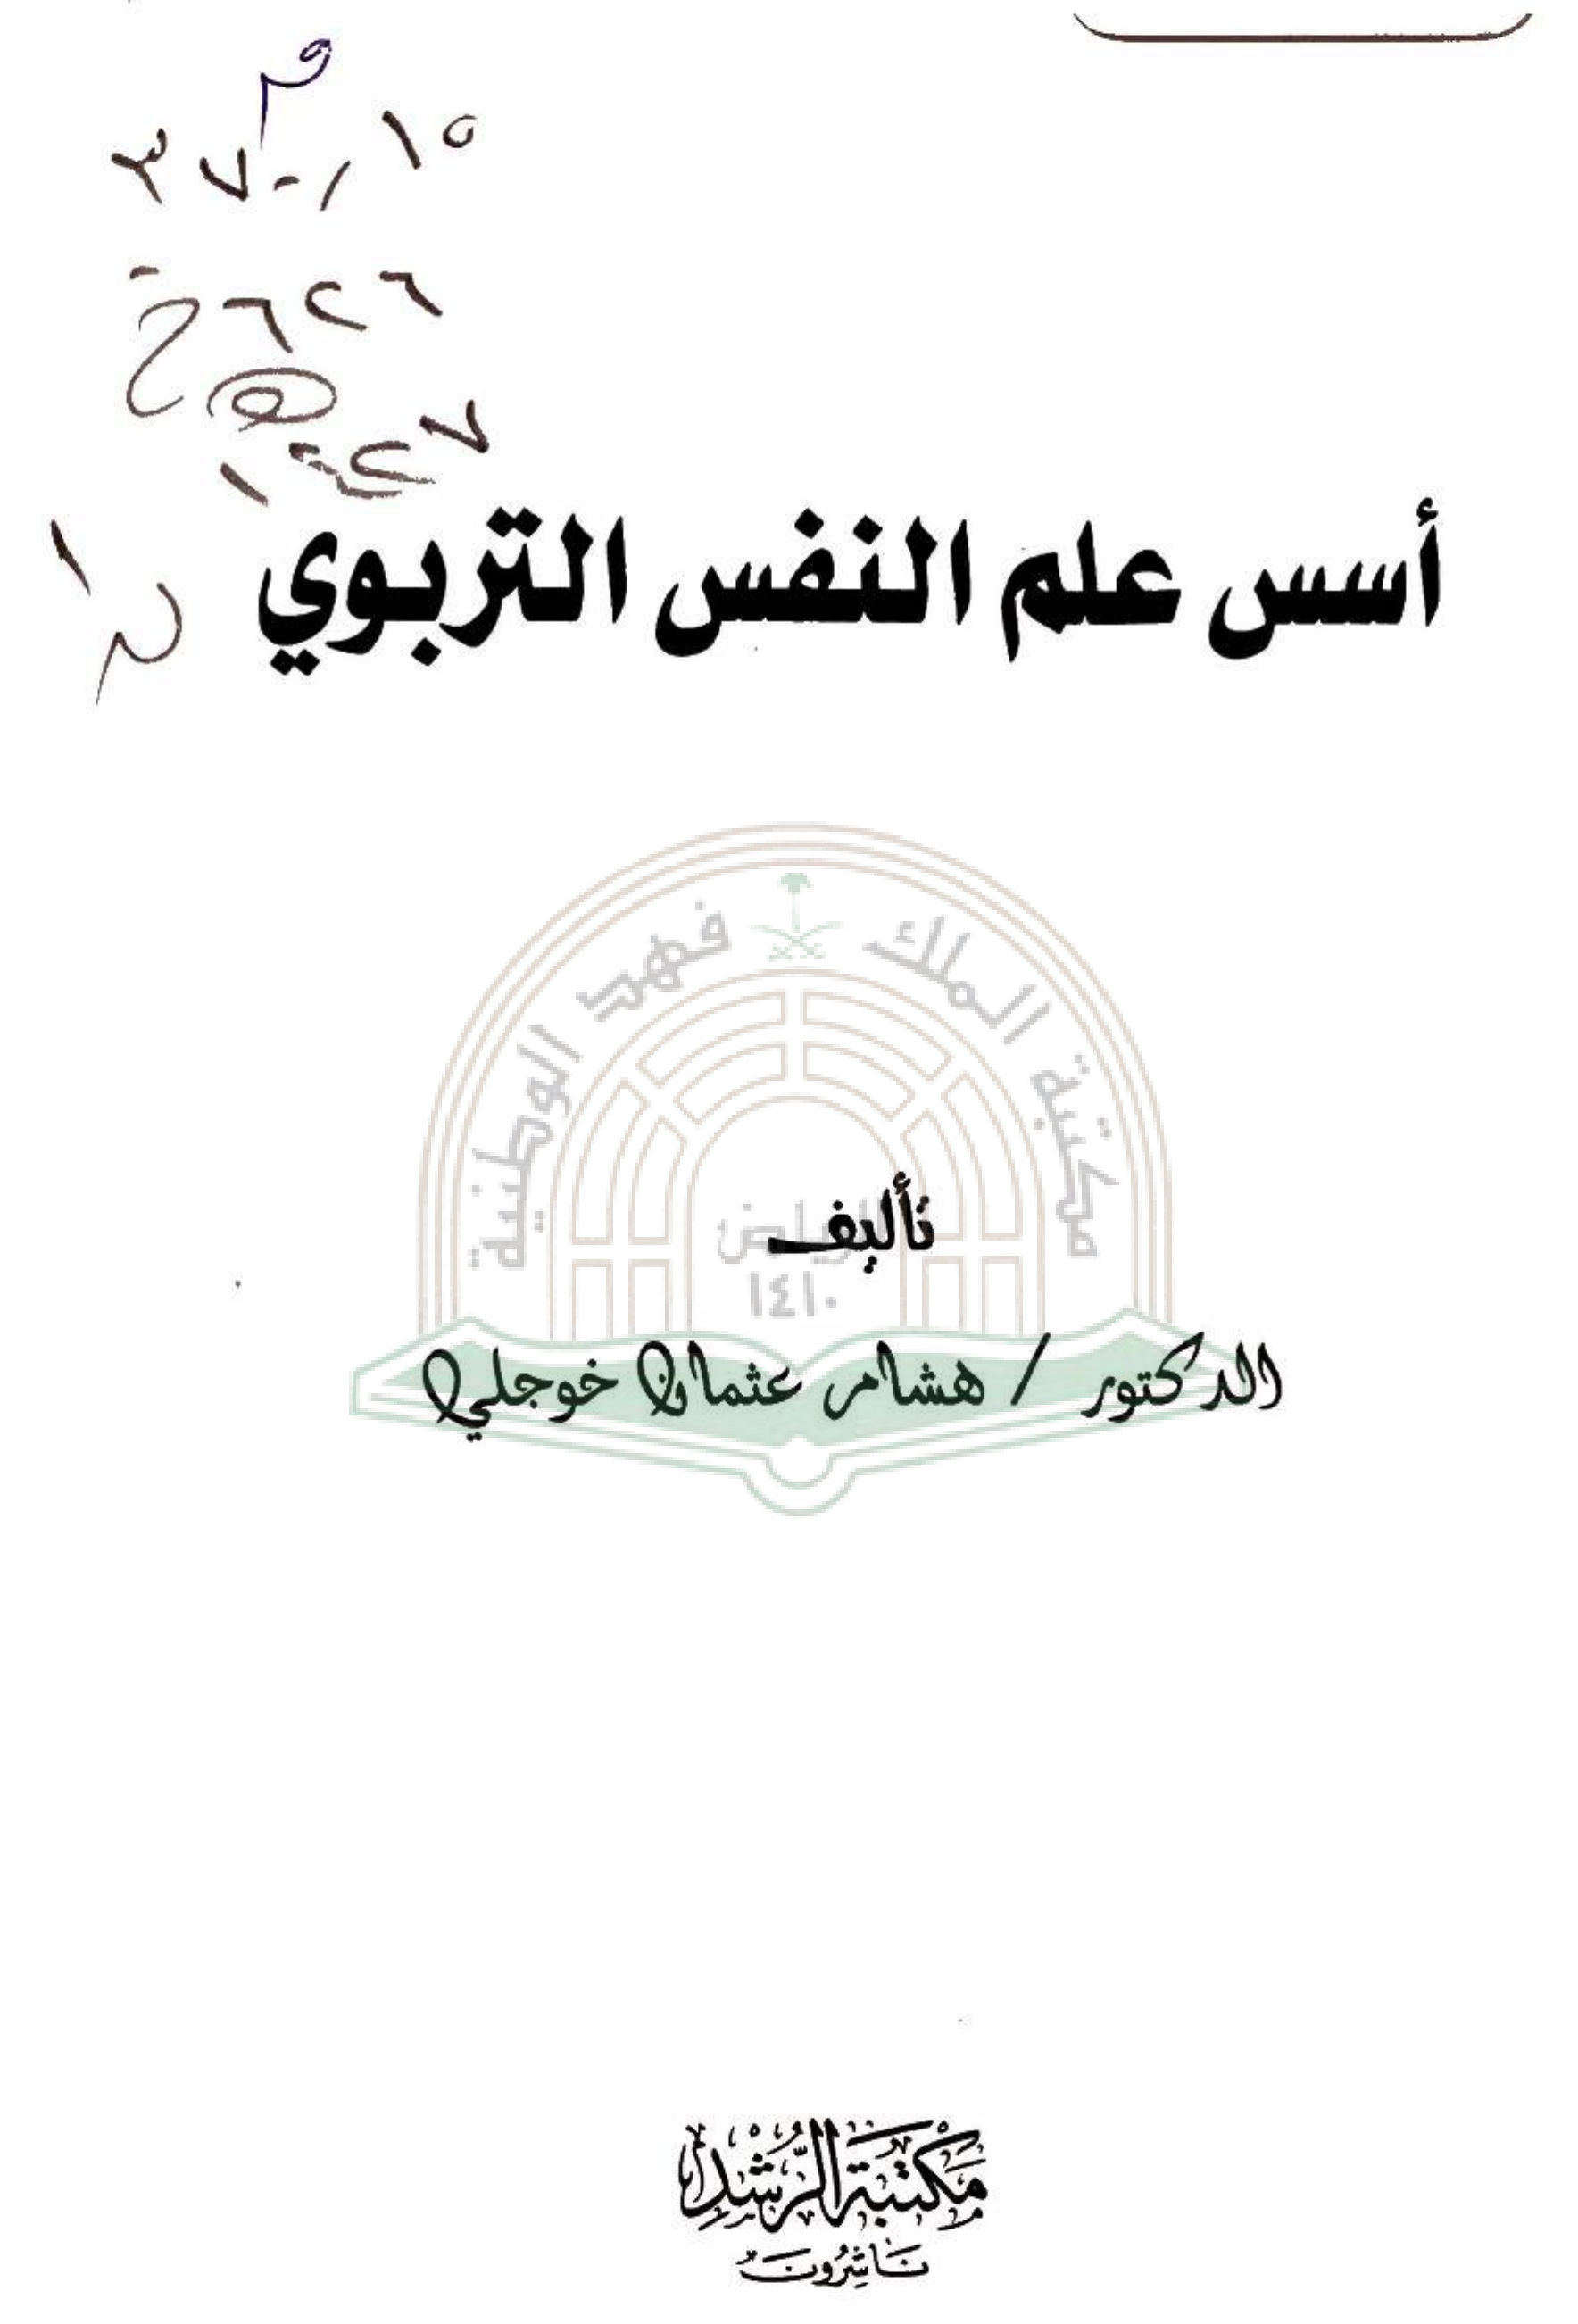 ٣٧٠٫١٥
أسس علم النفس التربوي
مكتبة الملك فهد الوطنية
الرياض
١٤١٠
تأليف
الدكتور / هشام عثمان خوجلي
مَكتبَة الرُّشد
نَاشِرُونَ